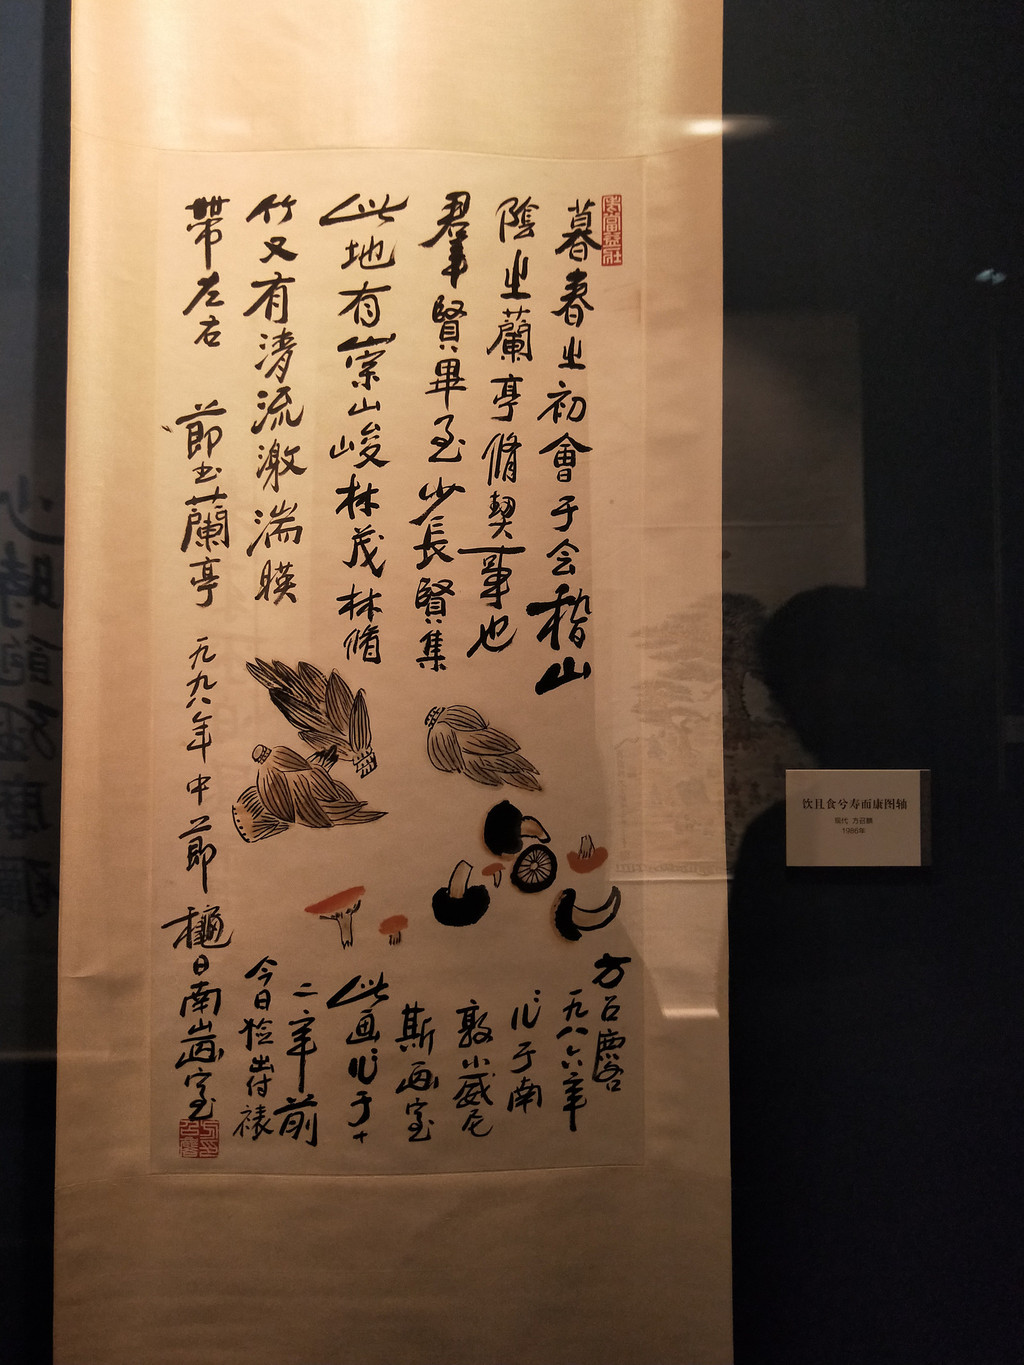 暮春之初會于会稽山
陰之蘭亭脩契事也
羣賢畢至少長賢集
此地有崇山峻林茂林脩
竹又有清流激湍暎
帶左右 節書蘭亭 一九九八年中節 日南室
方召麐
一九八六年
作于南
敦小威尼
斯画室
此画作于十
二年前
今日检出付裱
饮且食兮寿而康图轴
现代 方召麐
1986年